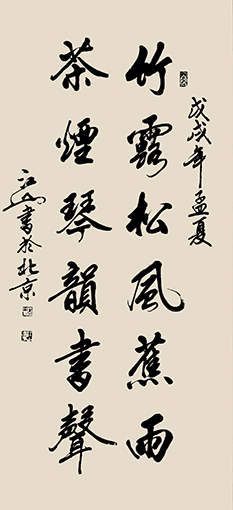 戊戌年孟夏
竹露松風蕉雨
茶煙琴韻書聲
江山書於北京